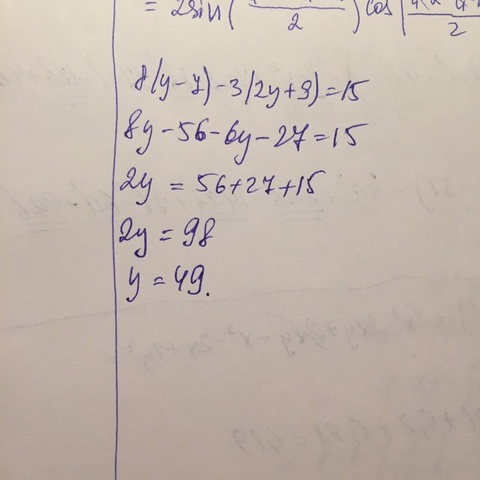 = 2sin( 2 ) cos( 2
8(y-7)-3(2y+9)=15
8y-56-6y-27=15
2y = 56+27+15
2y = 98
y = 49.